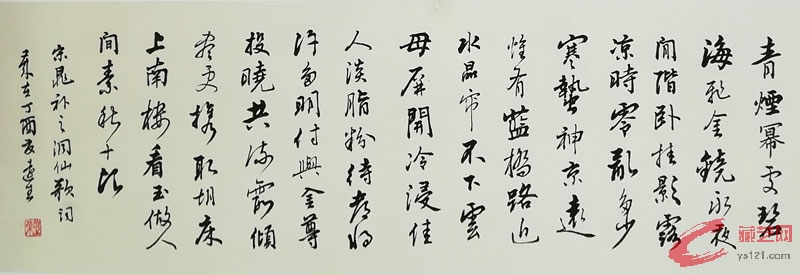 青煙冪处碧
海飛金鏡永夜
閒階卧桂影露
凉時零亂多少
寒蟄神京遠
惟有蓝橋路近
水晶帘不下雲
母屏開冷浸佳
人淡脂粉待都将
许多明付與金尊
投曉共流霞傾
尽更携取胡床
上南楼看玉做人
间素秋千顷
宋晁补之洞仙歌词
丁酉夏
藏艺网
ys121.com